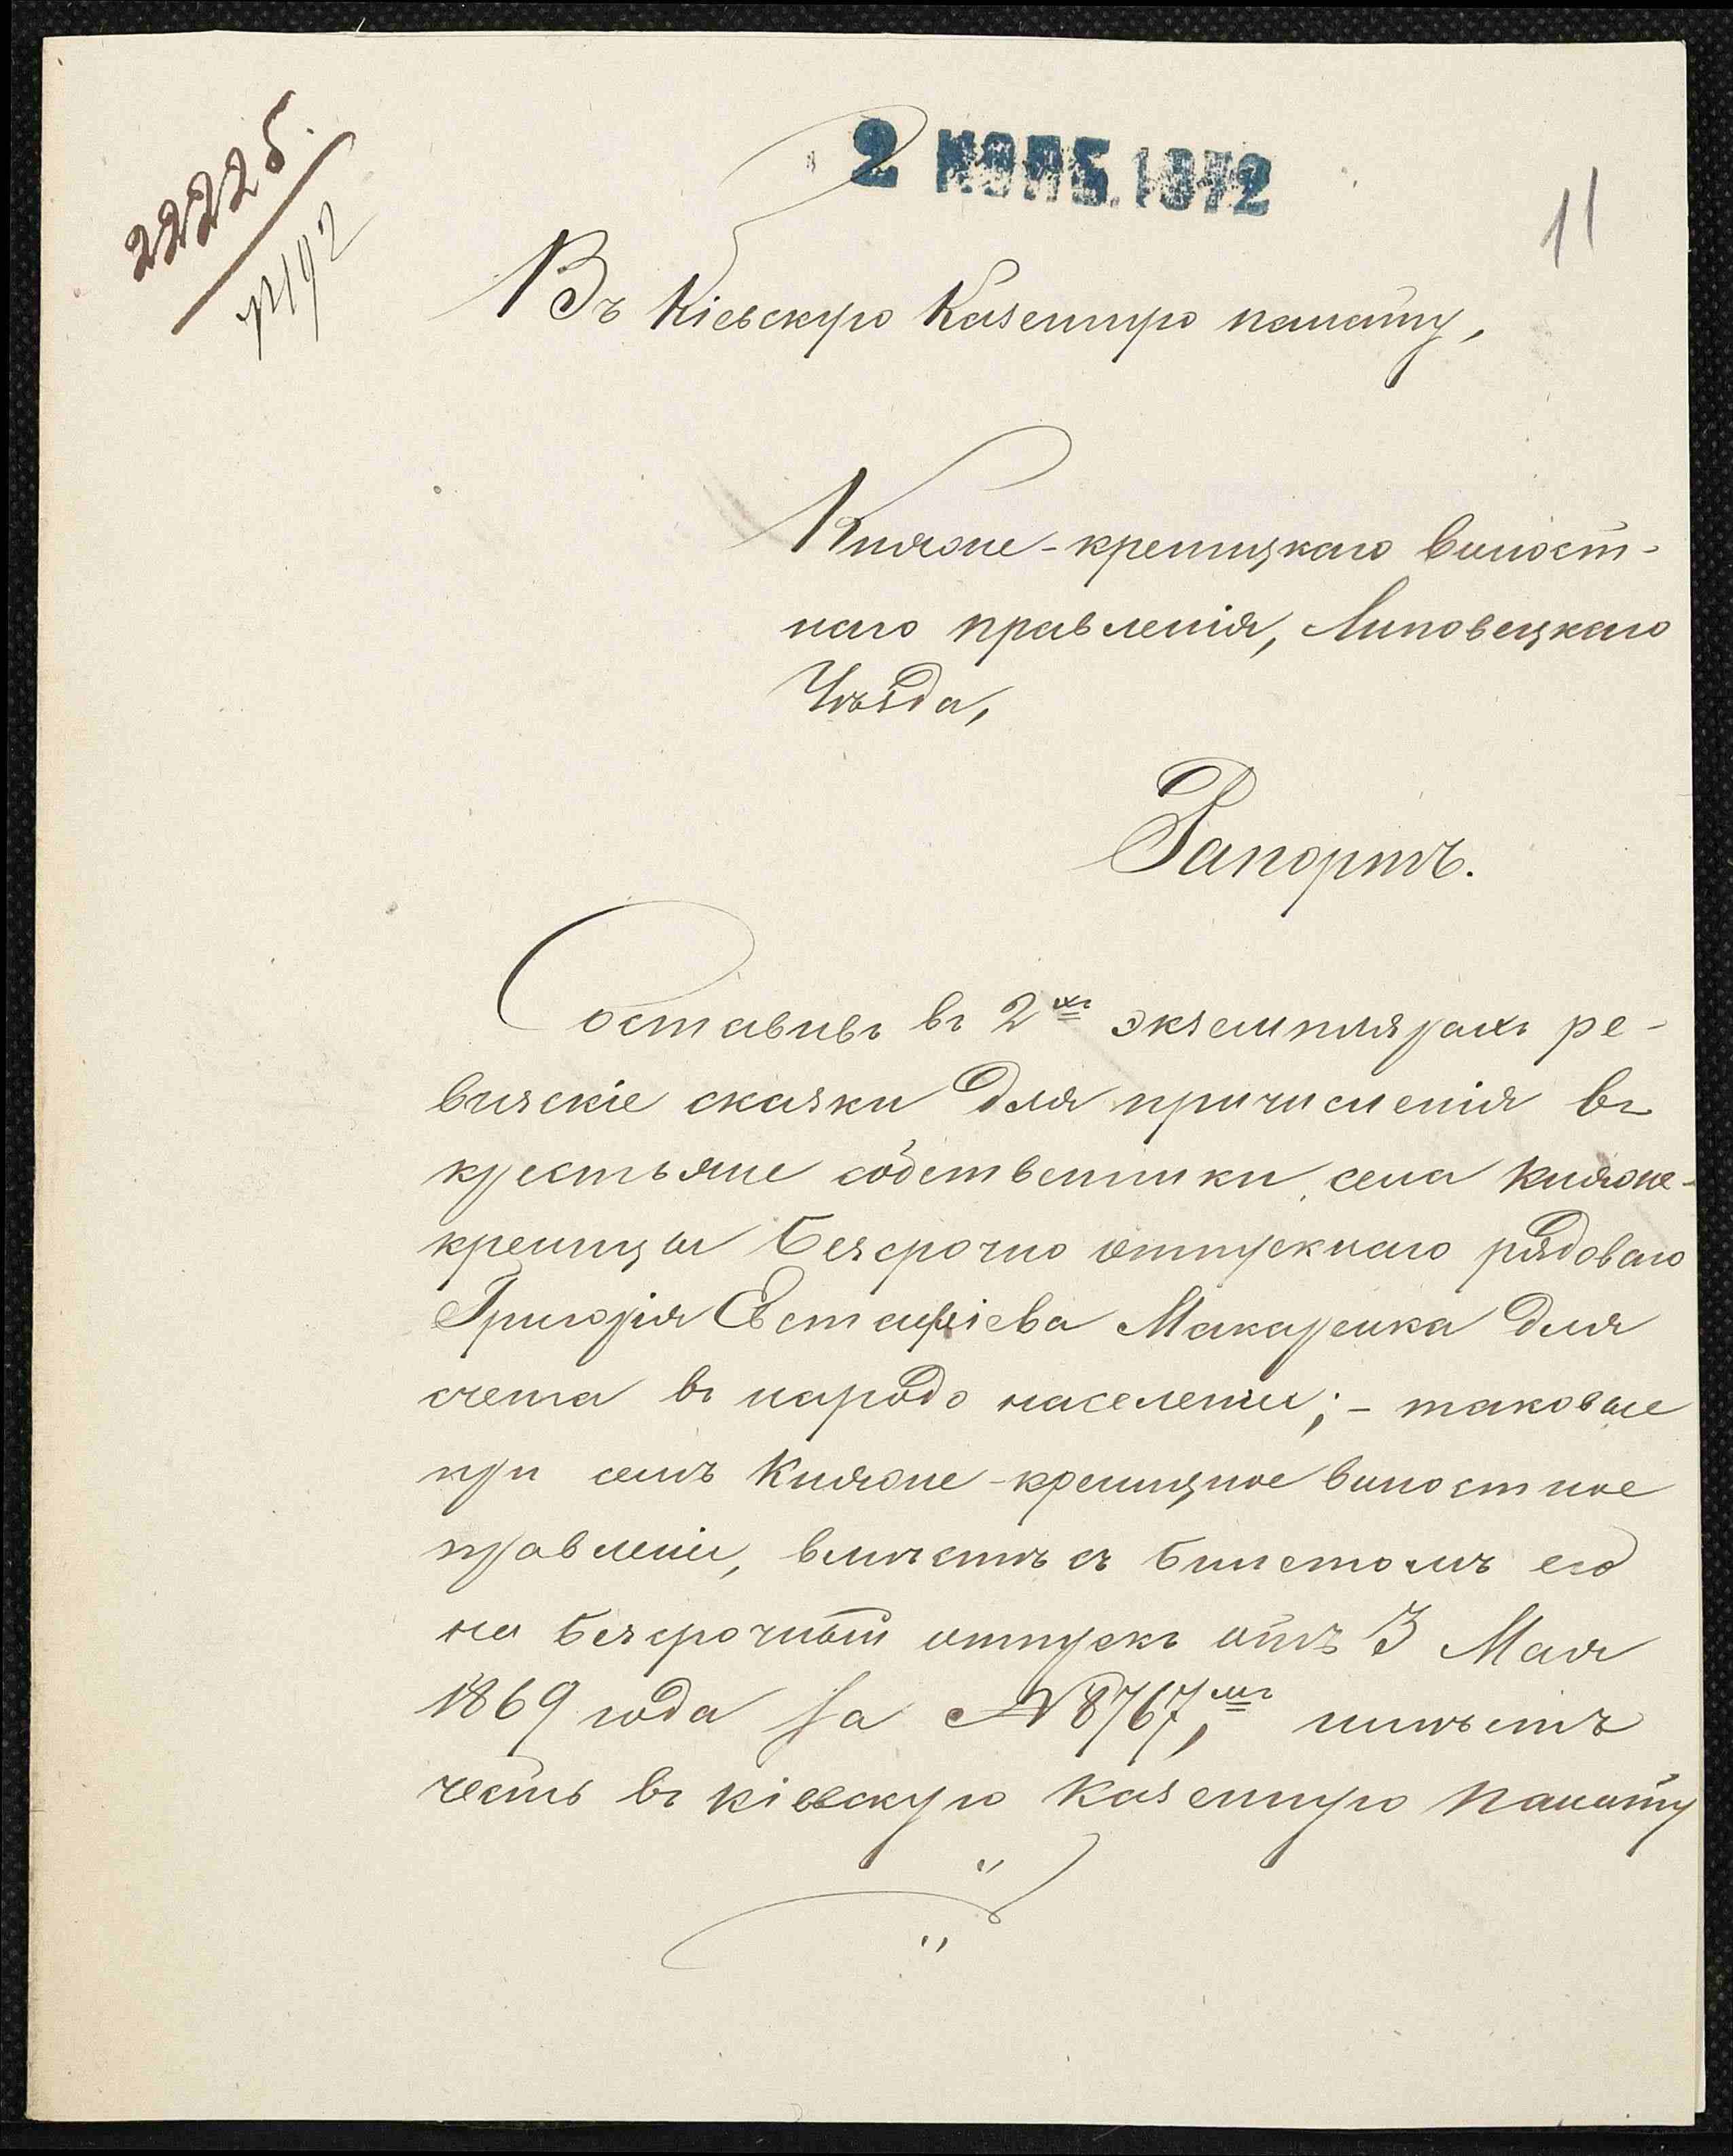 22225.
2 НОЯБ. 1872
11
Въ Кіевскую Казенную палату,
Княже-креницкаго волост-
наго правленія, Липовецкаго
Уѣзда,
Рапортъ.
Составивъ въ 2хъ экземплярахъ ре-
визскіе сказки для причисленія въ
крестьяне собственники села Княже-
креницы безсрочно отпускнаго рядоваго
Григорія Евстафіева Макаренка для
счета въ народо населеніи; - таковые
при семъ Княже-креницкое волостное
правленіе, вмѣстѣ съ билетомъ его
на безсрочный отпускъ отъ 3 Мая
1869 года за № 8767,мъ имѣетъ
честь въ кіевскую казенную палату